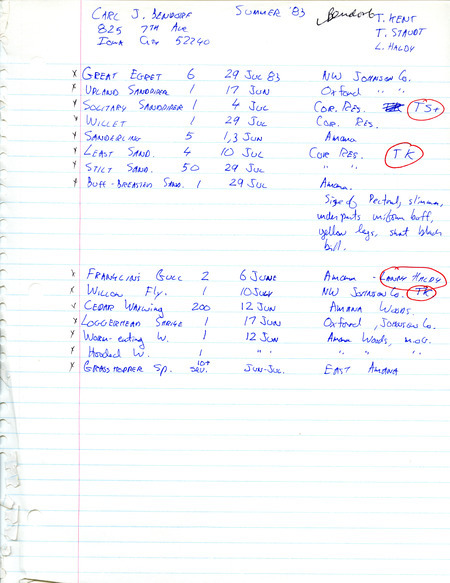 CARL J. BENDORF SUMMER '83 Bendorf T. KENT
825 7TH AVE T. STAUDT
IOWA CITY 52240 L. HALDY
x GREAT EGRET 6 29 JUL 83 NW JOHNSON CO.
x UPLAND SANDPIPER 1 17 JUN Oxford " "
x SOLITARY SANDPIPER 1 4 JUL COR. RES. TS+
x WILLET 1 29 JUL COR. RES.
x SANDERLING 5 1,3 JUN Amana
x LEAST SAND. 4 10 JUL COR RES. TK
x STILT SAND. 50 29 JUL " "
x BUFF-BREASTED SAND. 1 29 JUL Amana.
Size of Pectoral, slimmer,
underparts uniform buff,
yellow legs, short black
bill.
x FRANKLIN'S GULL 2 6 JUNE Amana - LANNY HALDY
x WILLOW FLY. 1 10 JULY NW JOHNSON CO. TK
✓ CEDAR WAXWING 200 12 JUN AMANA WOODS.
x LOGGERHEAD SHRIKE 1 17 JUN Oxford, JOHNSON CO.
x Worm-eating W. 1 12 JUN Amana Woods, m.ob.
x Hooded W. 1 " " " " "
x GRASSHOPPER SP. 10+ JUN-JUL. EAST AMANA